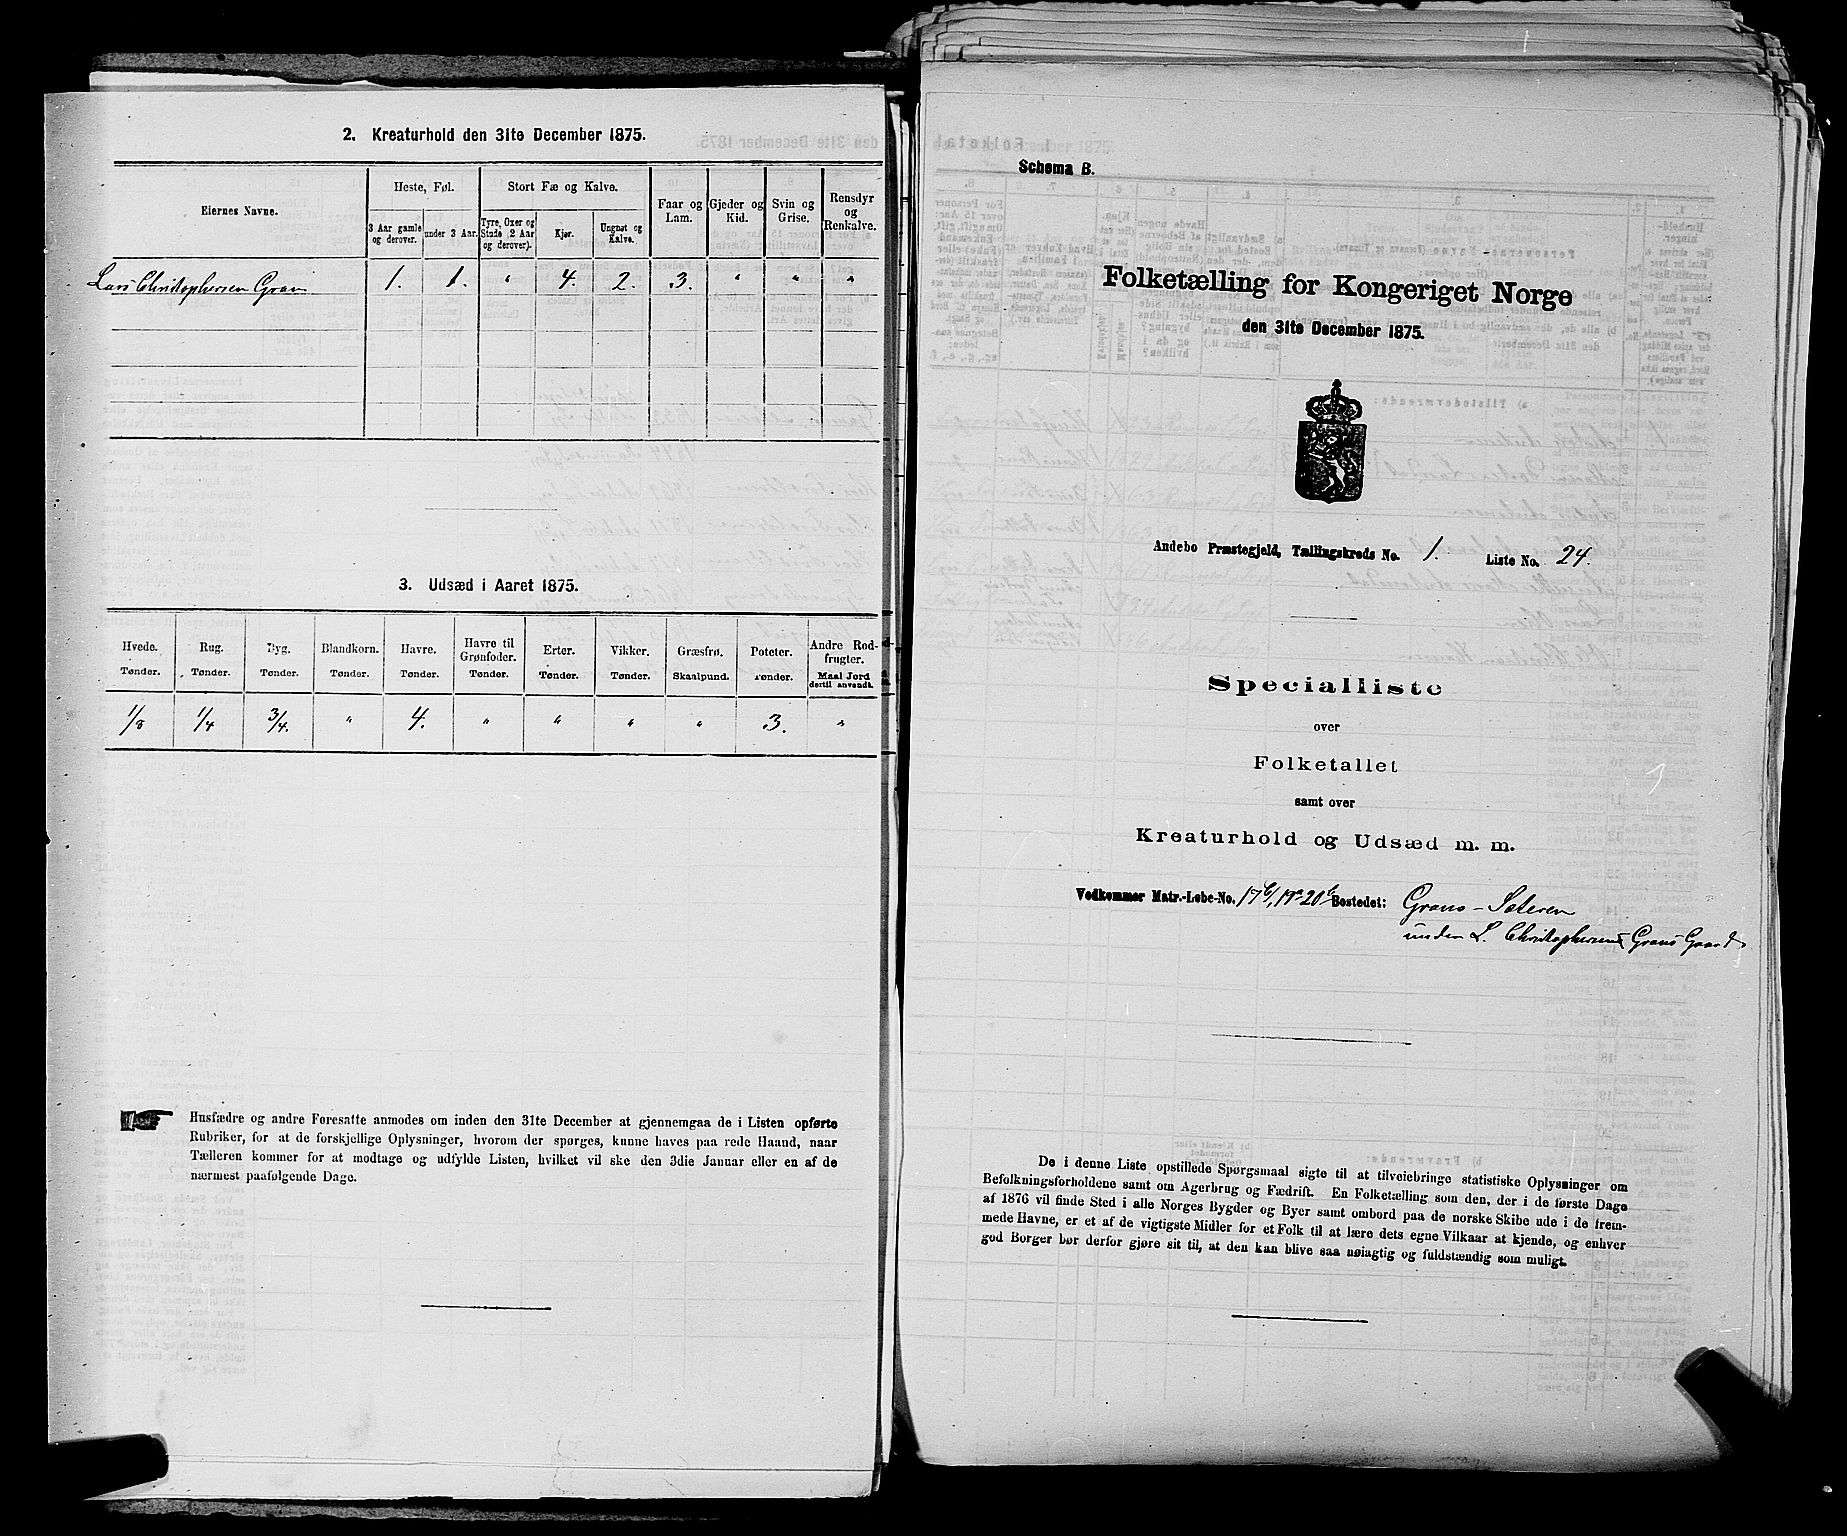 2. Kreaturhold den 31te December 1875.
Eiernes Navne.
Heste, Føl.
3 Aar gamle og derover.
under 3 Aar.
Stort Fæ og Kalve.
Tyre, Oxer og Stude (2 Aar og derover).
Kjør.
Ungnøt og Kalve.
Faar og Lam.
Gjeder og Kid.
Svin og Grise.
Rensdyr og Renkalve.
Lars Christophersen Gran 1. 1. " 4. 2. 3. " " "
3. Udsæd i Aaret 1875.
Hvede. Rug. Byg. Blandkorn. Havre. Havre til Grønfoder. Erter. Vikker. Græsfrø. Poteter. Andre Rodfrugter.
Tønder. Tønder. Tønder. Tønder. Tønder. Tønder. Tønder. Tønder. Skaalpund. Tønder. Maal Jord dertil anvendt.
1/8 1/4 3/4. " 4. " " " " 3. "
Husfædre og andre Foresatte anmodes om inden den 31te December at gjennemgaa de i Listen opførte
Rubriker, for at de forskjellige Oplysninger, hvorom der spørges, kunne haves paa rede Haand, naar
Tælleren kommer for at modtage og udfylde Listen, hvilket vil ske den 3die Januar eller en af de
nærmest paafølgende Dage.
Schema B.
Folketælling for Kongeriget Norge
den 31te December 1875.
Andebo Præstegjeld, Tællingskreds No. 1. Liste No. 24.
Specialliste
over
Folketallet
samt over
Kreaturhold og Udsæd m. m.
Vedkommer Matr.-Løbe-No. Bostedet: Grans-Sæteren
under L. Christophersens Grans Gaard
De i denne Liste opstillede Spørgsmaal sigte til at tilveiebringe statistiske Oplysninger om
Befolkningsforholdene samt om Agerbrug og Fædrift. En Folketælling som den, der i de første Dage
af 1876 vil finde Sted i alle Norges Bygder og Byer samt ombord paa de norske Skibe ude i de frem-
mede Havne, er et af de vigtigste Midler for et Folk til at lære dets egne Vilkaar at kjende, og enhver
god Borger bør derfor gjøre sit til, at den kan blive saa nøiagtig og fuldstændig som muligt.